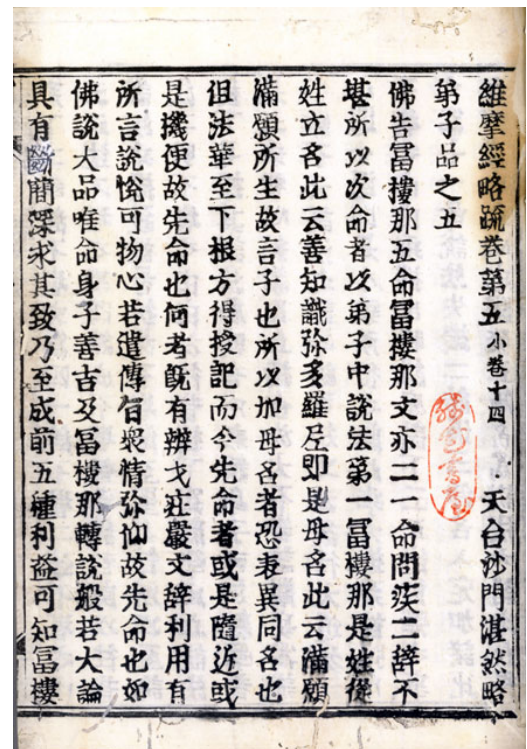 維摩經略疏卷第五 小卷十四 天台沙門湛然略
弟子品之五
佛告冨摟那五命冨摟那文亦二一命問疾二辭不
堪所以次命者以弟子中說法第一冨樓那是姓從
姓立名此云善知識弥多羅尼即是母名此云滿願
滿願所生故言子也所以加母名者恐表異同名也
但法華至下根方得授記而今先命者或是隨近或
是機便故先命也何者旣有辨才莊嚴文辭利用有
所言說悅可物心若遣傳旨衆情弥仰故先命也如
佛說大品唯命身子善吉及冨樓那轉說般若大論
具有斷簡深求其致乃至成前五種利益可知冨樓